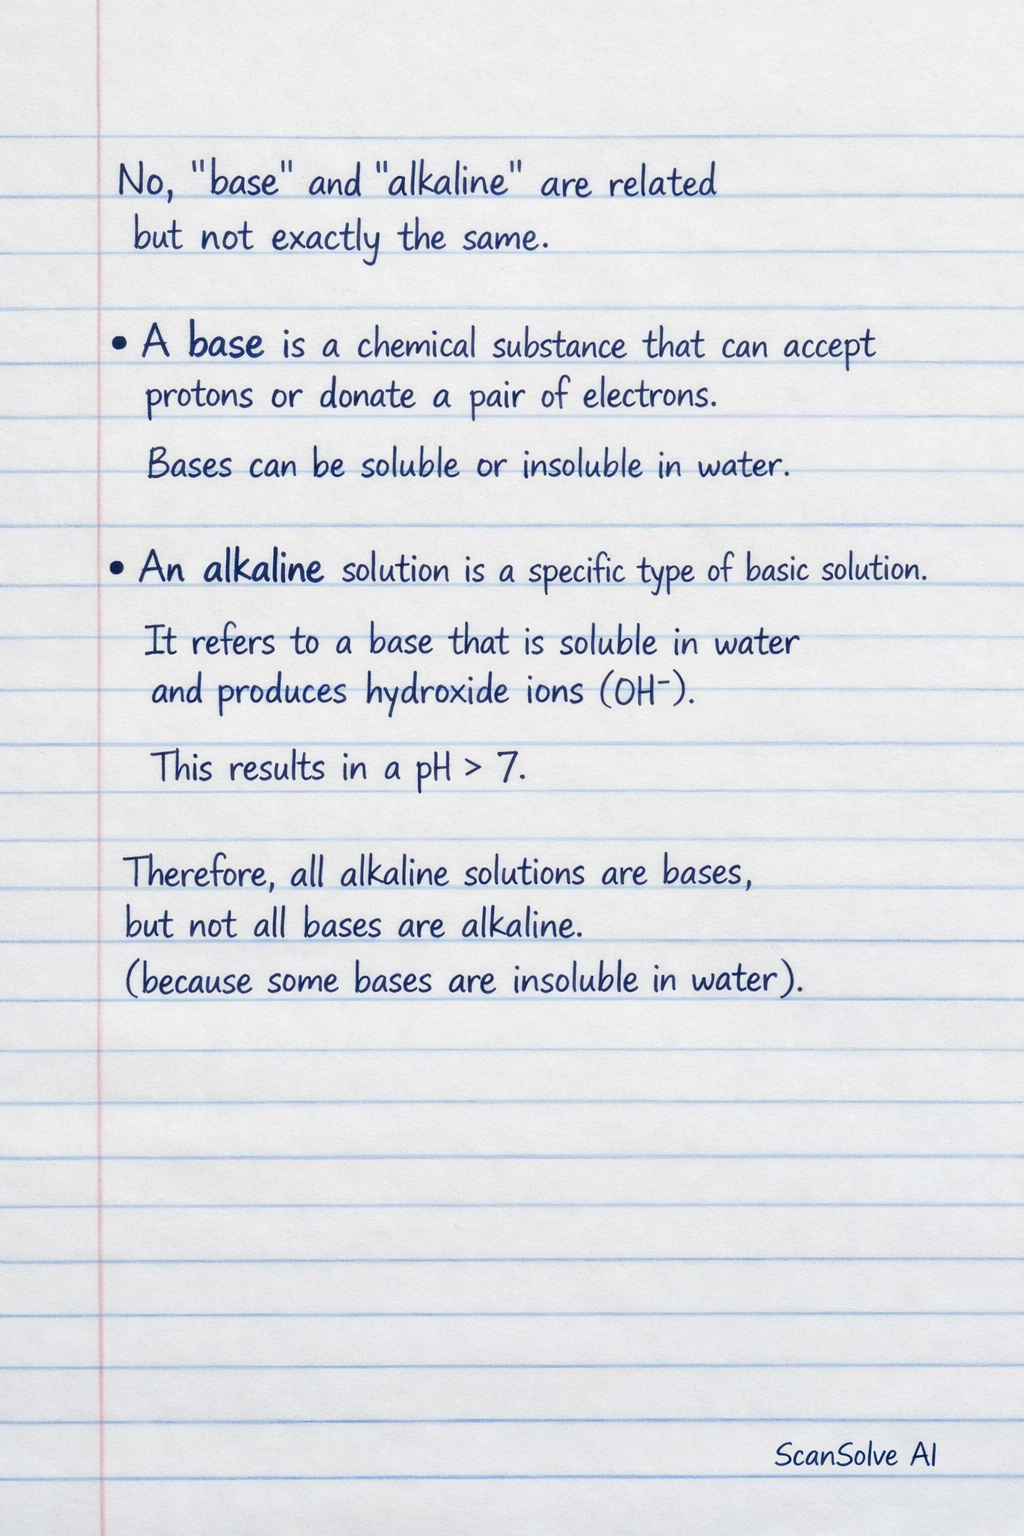 No, "base" and "alkaline" are related
but not exactly the same.
• A base is a chemical substance that can accept
protons or donate a pair of electrons.
Bases can be soluble or insoluble in water.
• An alkaline solution is a specific type of basic solution.
It refers to a base that is soluble in water
and produces hydroxide ions (OH⁻).
This results in a pH > 7.
Therefore, all alkaline solutions are bases,
but not all bases are alkaline.
(because some bases are insoluble in water).
ScanSolve AI